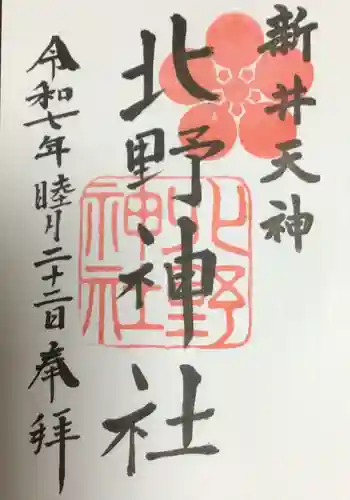 新井天神
北野神社
北野
神社
令和七年睦月二十二日奉拝